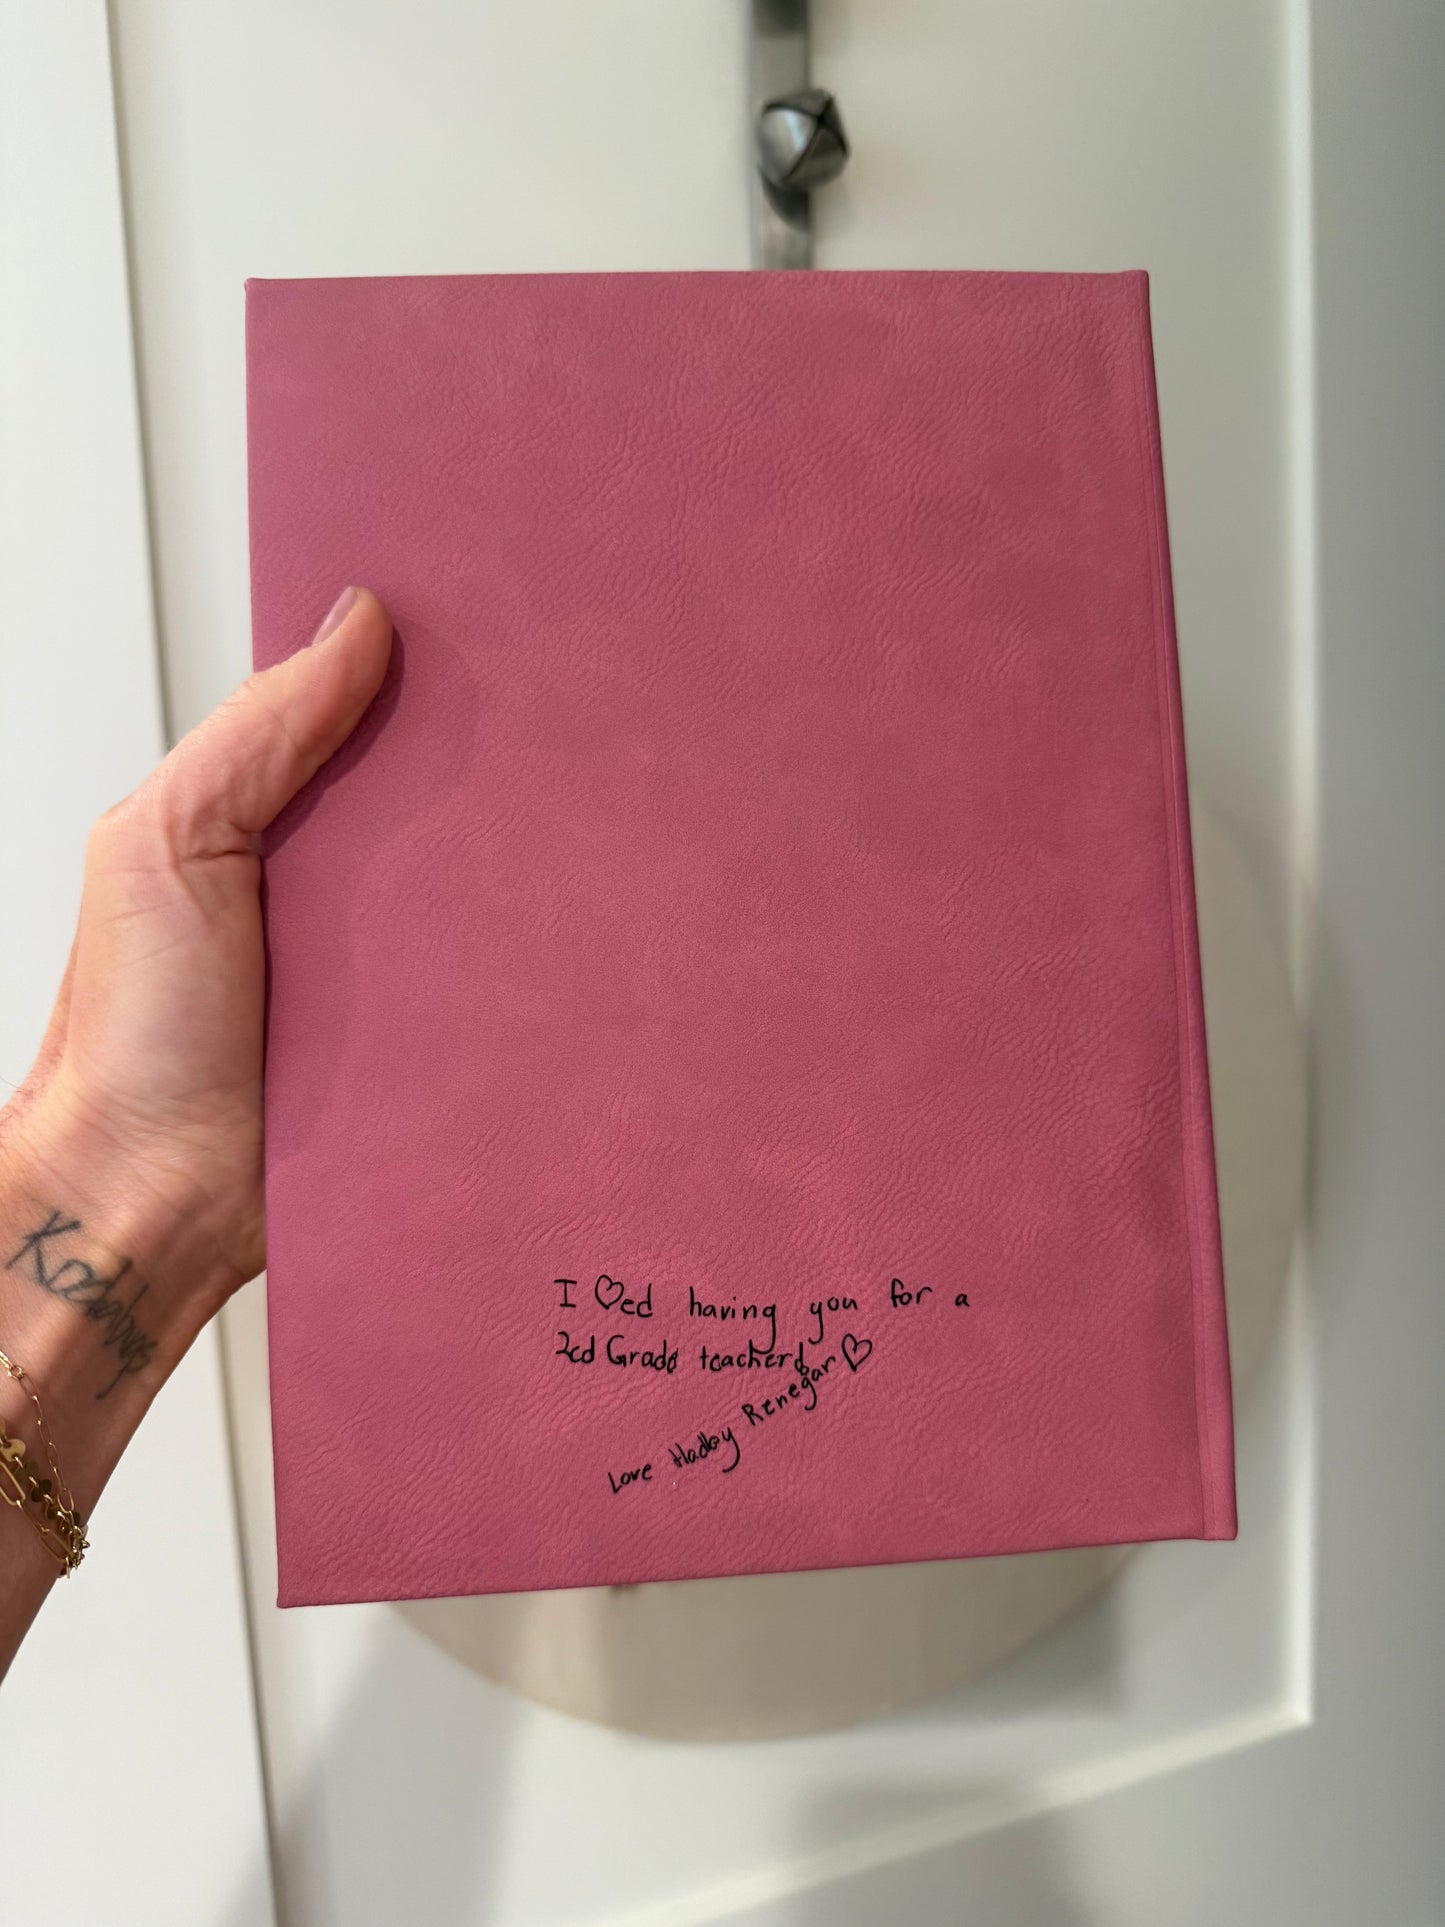 I ♡ed having you for a
2cd Grade teacher! ♡
Love Hadley Renegar